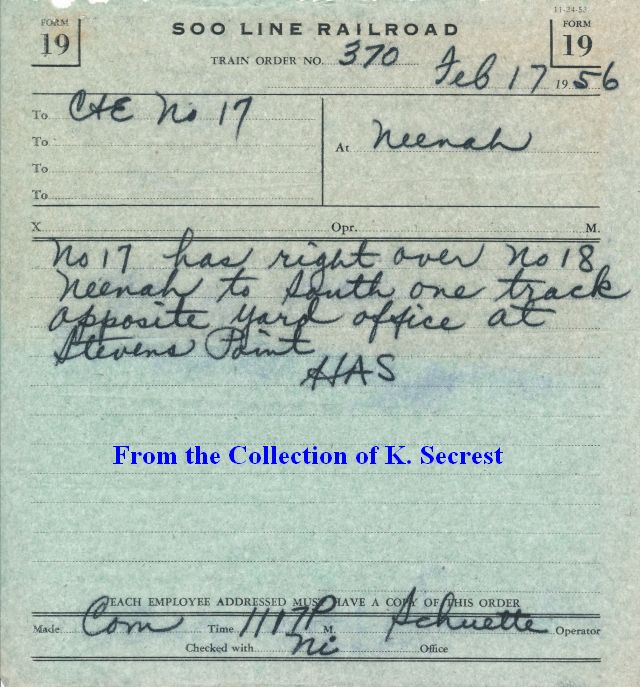 11-24-53
FORM 19
SOO LINE RAILROAD
FORM 19
TRAIN ORDER NO. 370 Feb 17 1956
To C&E No 17
To
To
To
At Neenah
X Opr. M.
No 17 has right over No 18
Neenah to South one track
opposite yard office at
Stevens Point
HAS
From the Collection of K. Secrest
EACH EMPLOYEE ADDRESSED MUST HAVE A COPY OF THIS ORDER
Made Com Time 1117P M. Schuette Operator
Checked with Ni Office